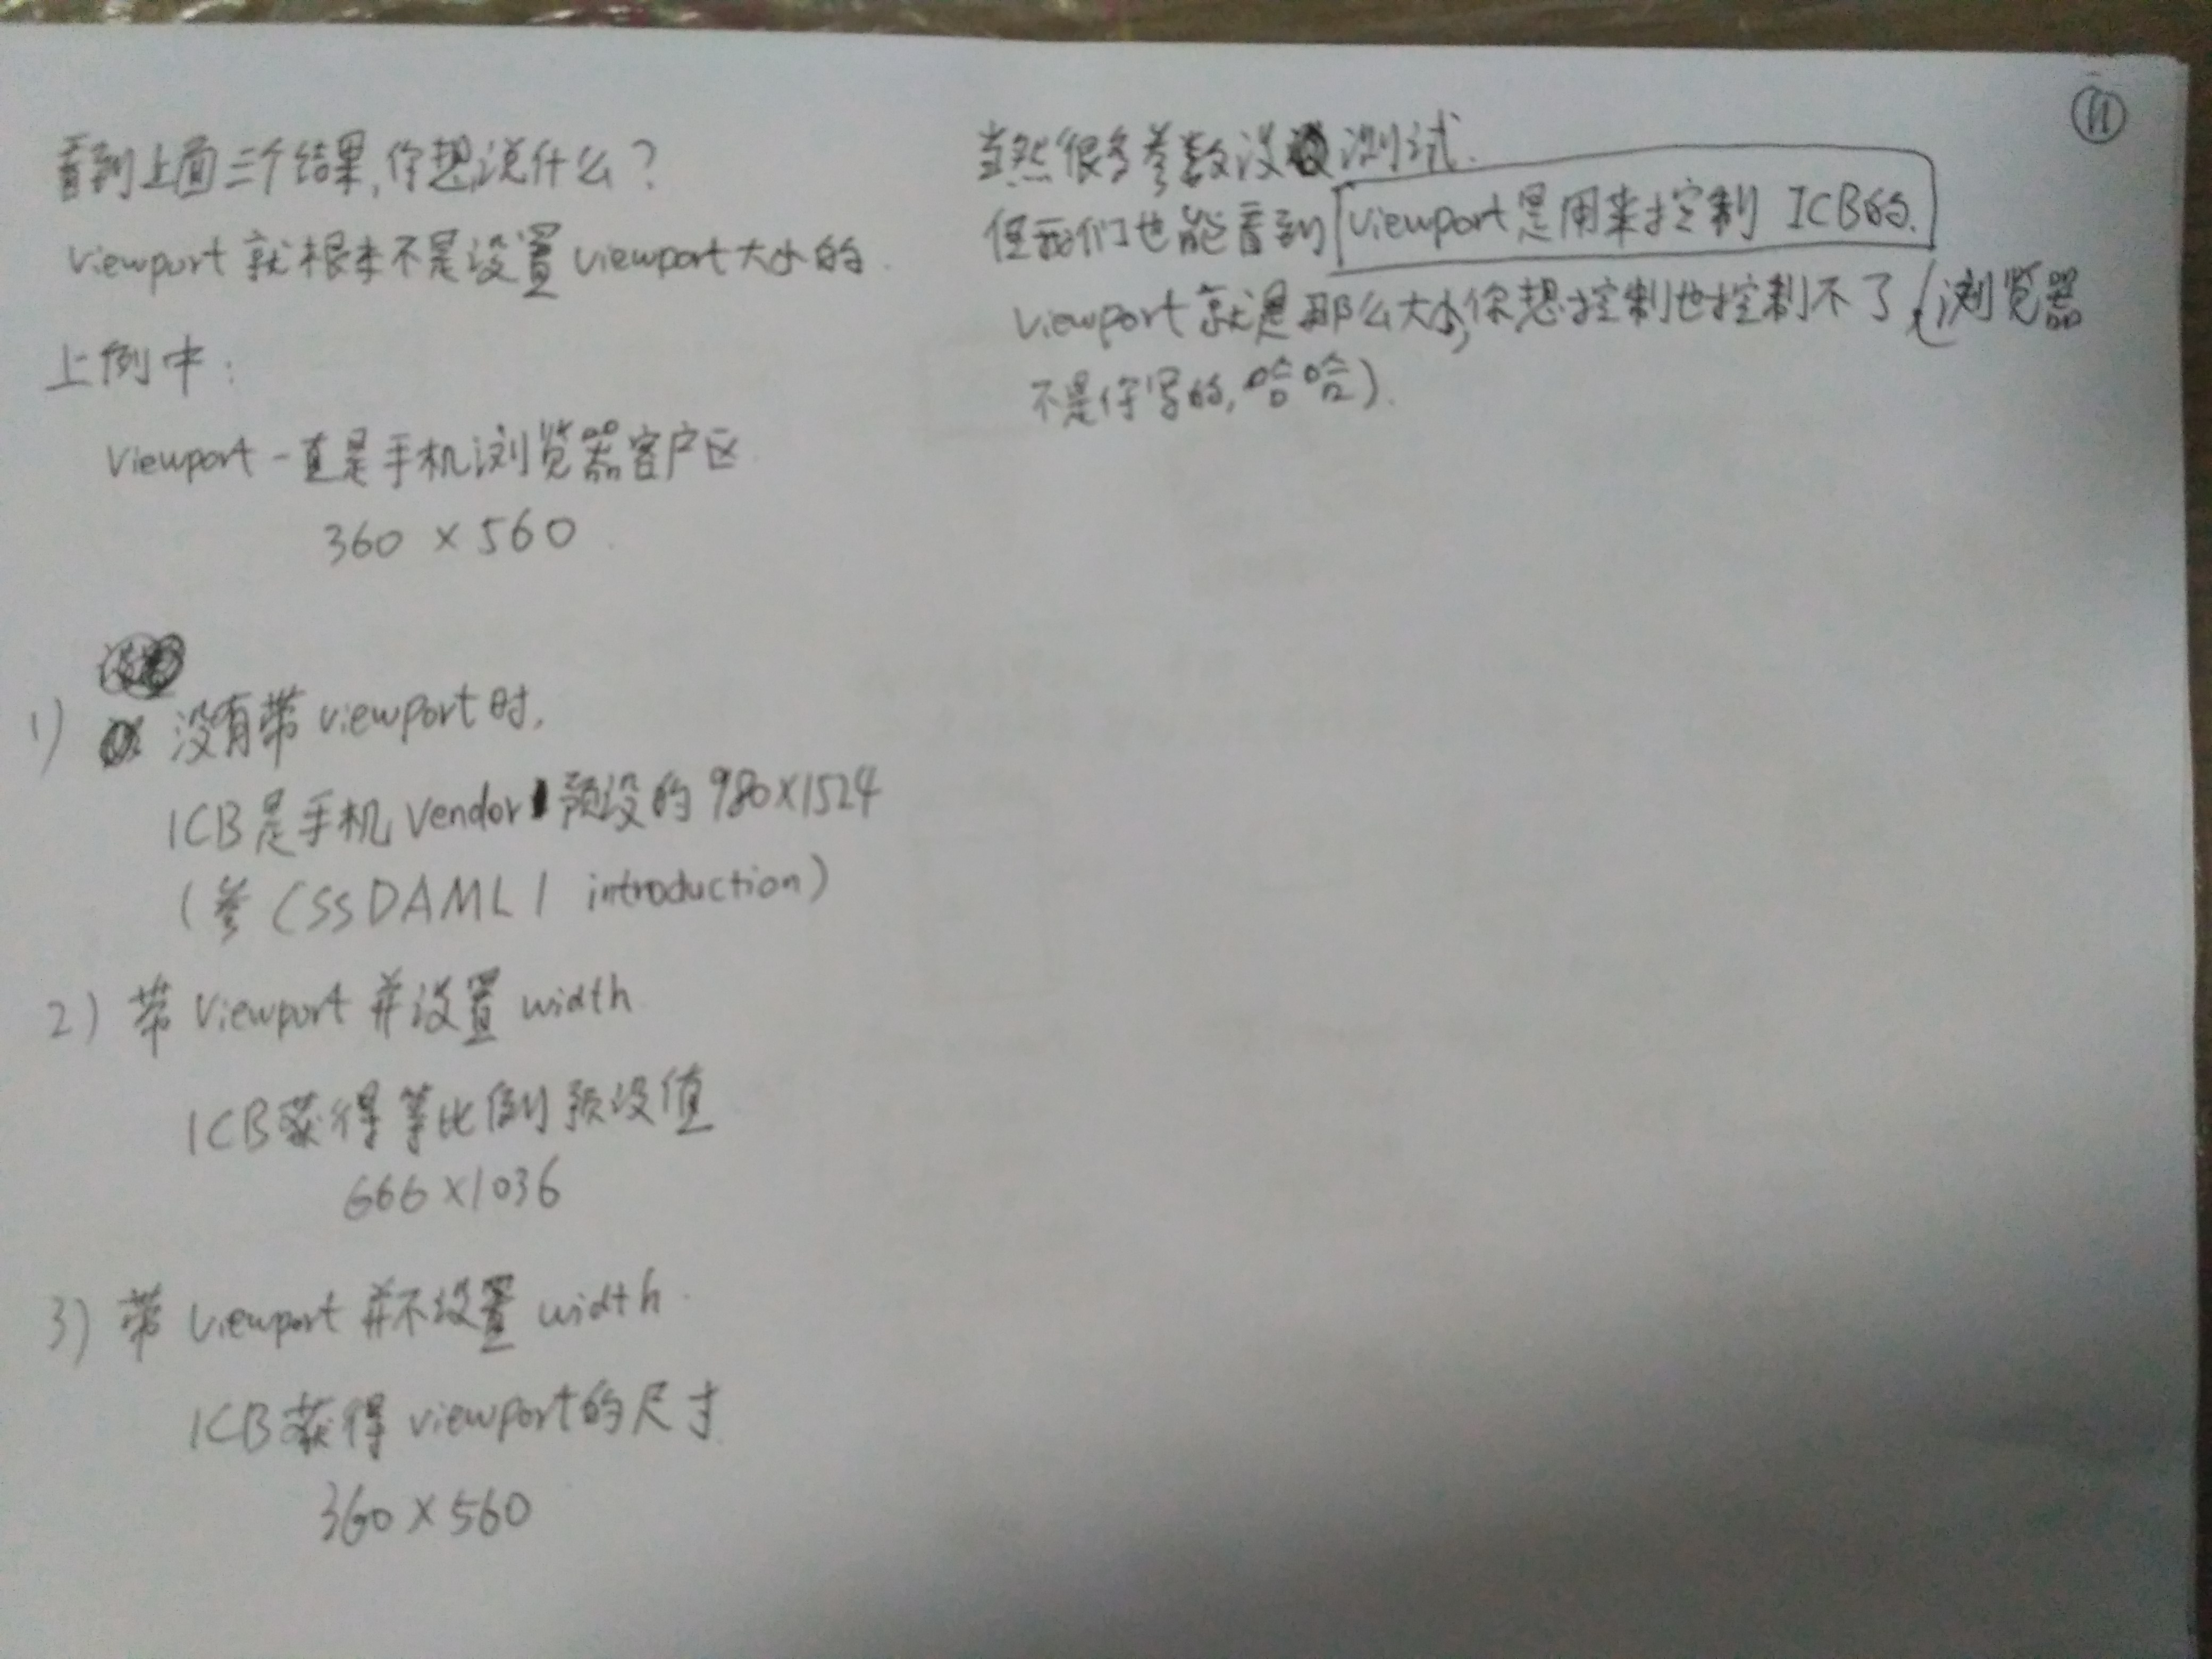 看到上面三个结果,你想说什么?
viewport 就根本不是设置 viewport 大小的.
上例中:
Viewport 一直是手机浏览器客户区.
360 × 560.
1) 没有带 viewport 时,
ICB是手机 Vendor 预设的 980×1524
(参 CSSDAML1 introduction)
2) 带 Viewport 并设置 width
ICB获得等比例预设值
666×1036
3) 带 Viewport 并不设置 width.
ICB获得 viewport的尺寸
360×560
11
当然很多参数没测试.
但我们也能看到 viewport是用来控制 ICB的.
Viewport 就是那么大小,你想控制也控制不了 (浏览器
不是你写的,哈哈).